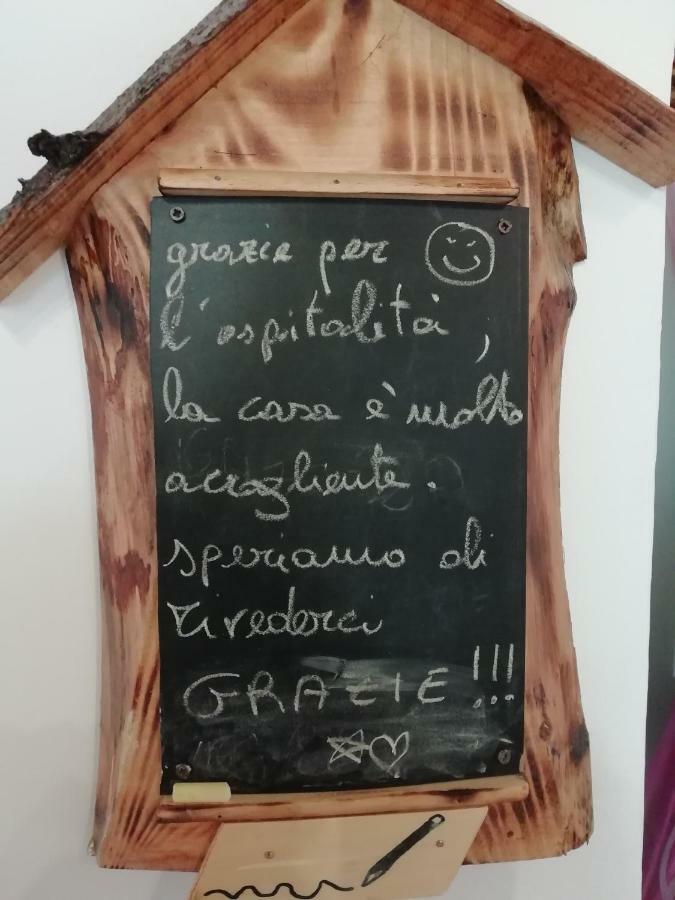 grazie per
l'ospitalità,
la casa è molto
accogliente.
speriamo di
rivederci
GRAZIE !!!